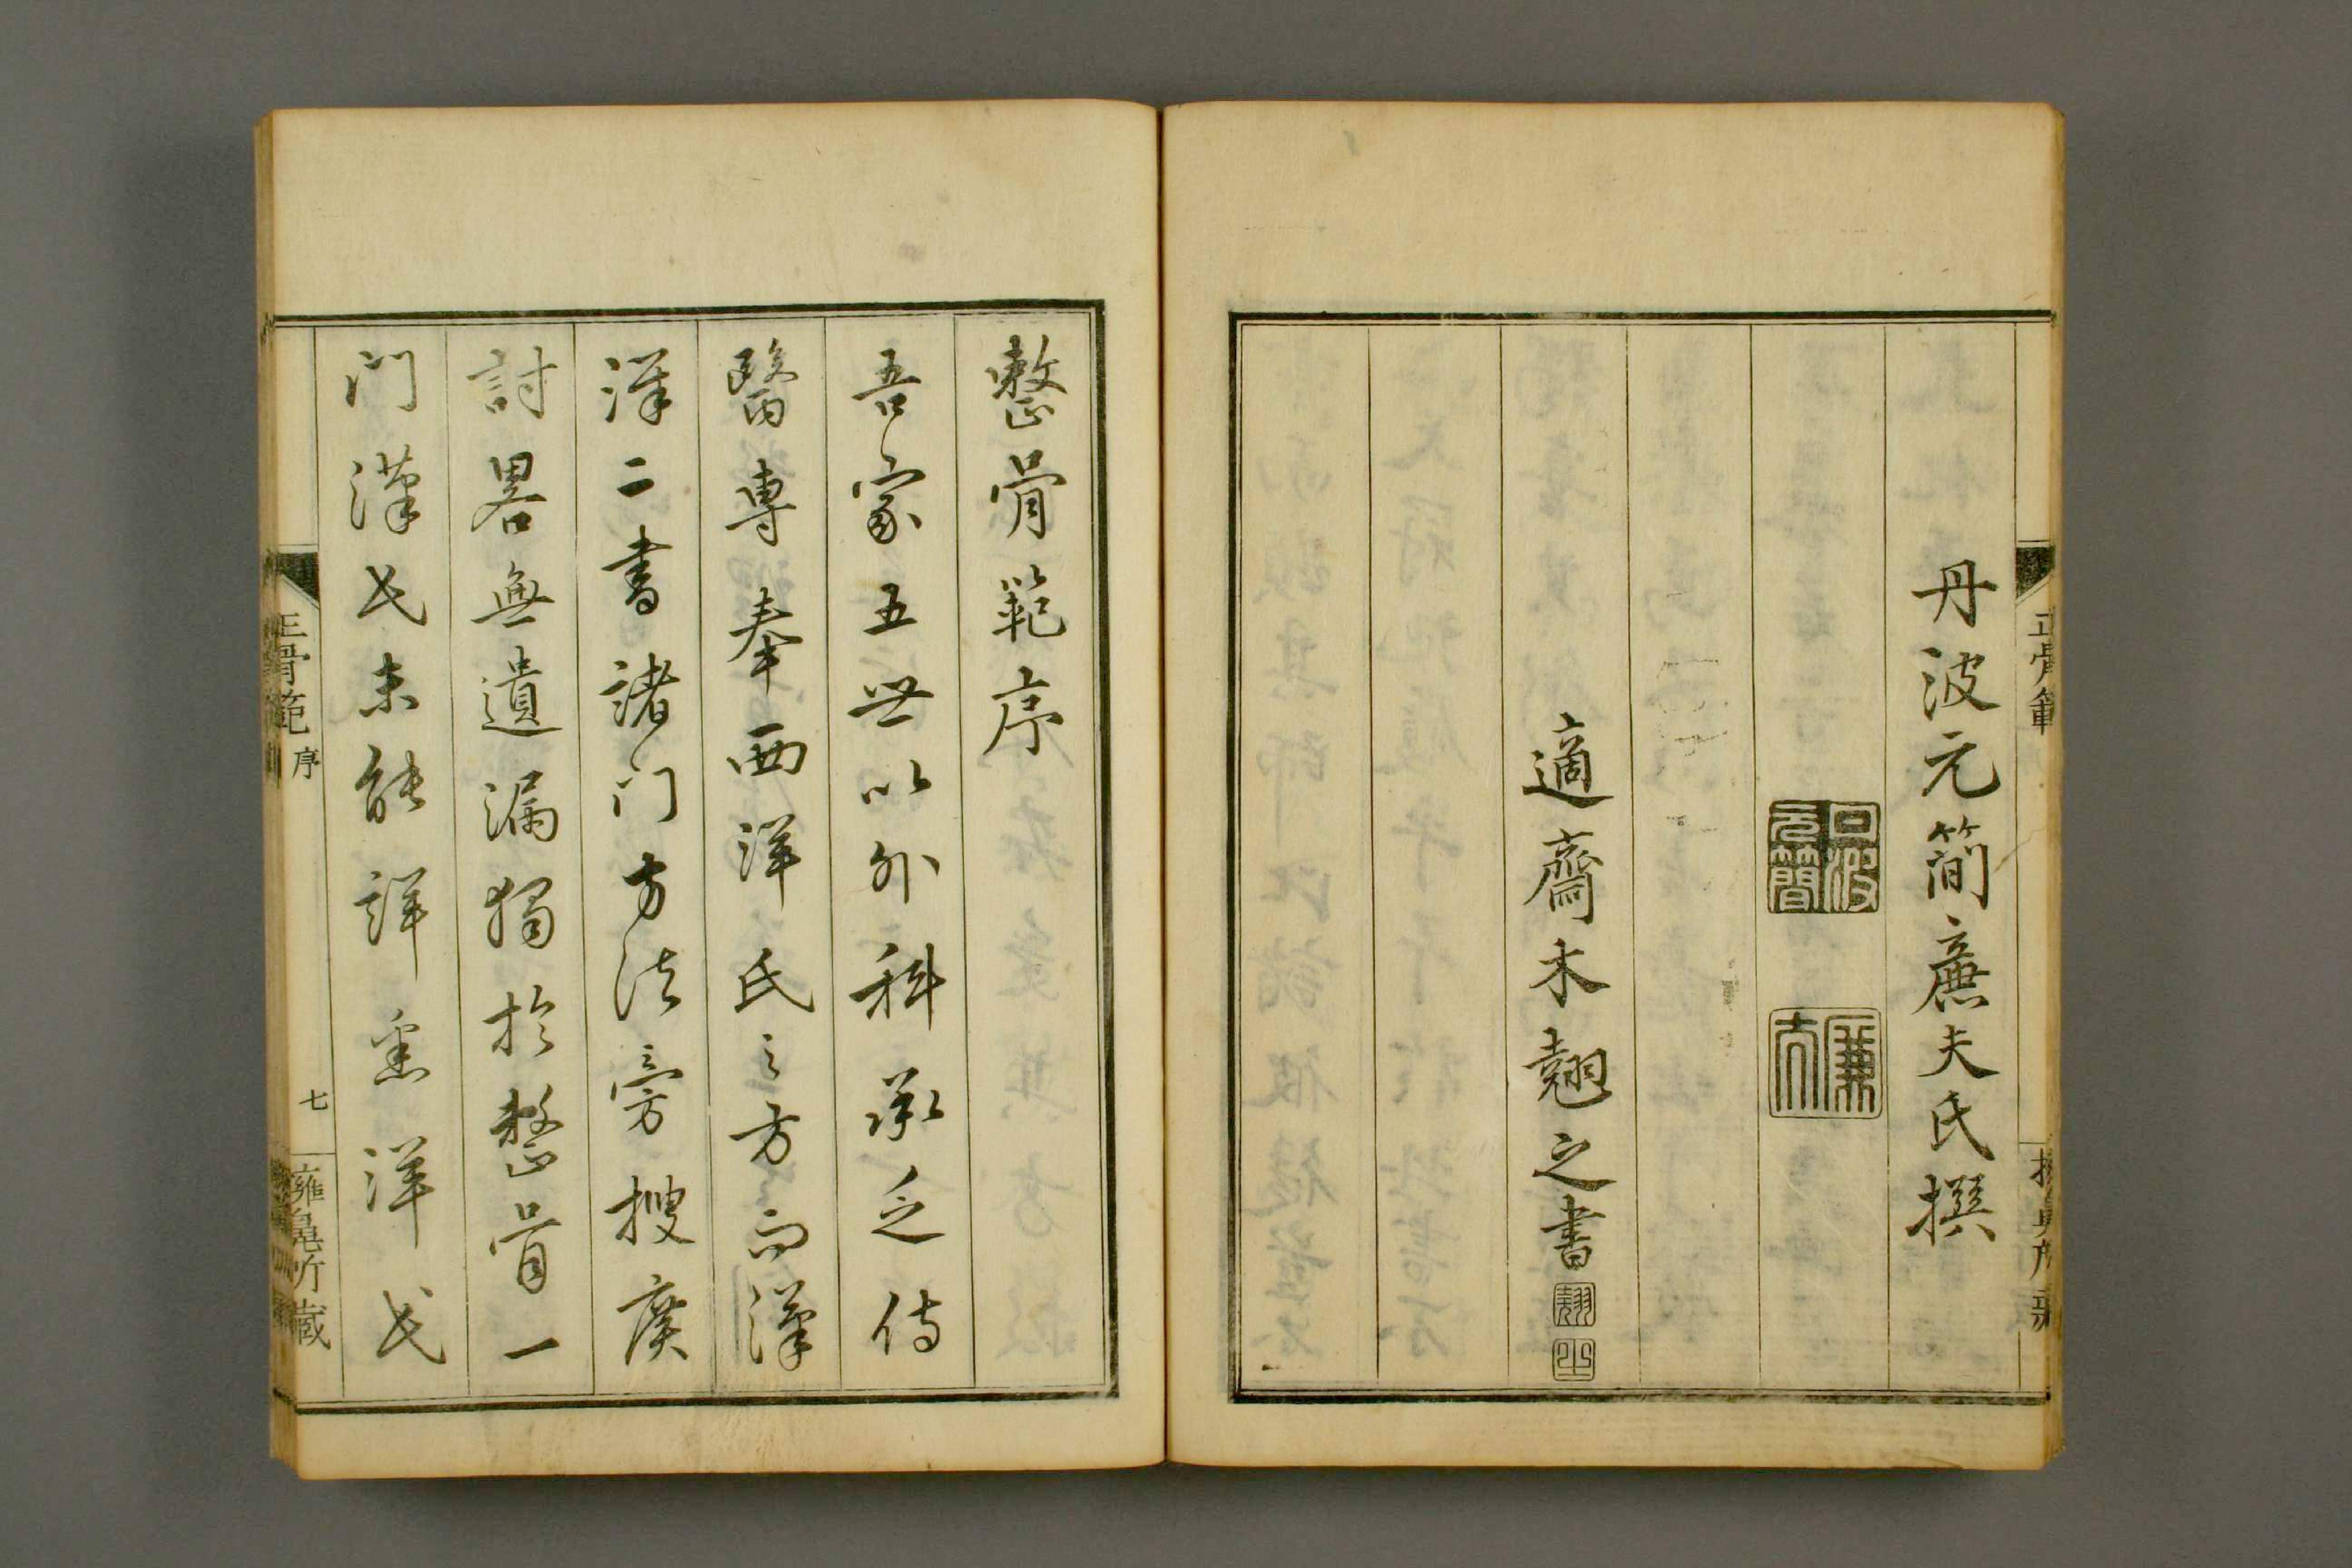 丹波元簡廉夫氏撰
丹波元簡
廉夫
適齋木翹之書
整骨範序
吾家五世以外科承乏侍
醫專奉西洋氏之方而漢
洋二書諸门方法旁搜廣
討畧無遺漏獨於整骨一
门漢氏未能詳悉洋氏
正骨範
正骨範 序
七
擁鼻所蔵